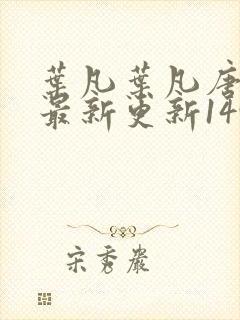 葉凡葉凡唐
最新更新14
宋秀嚴